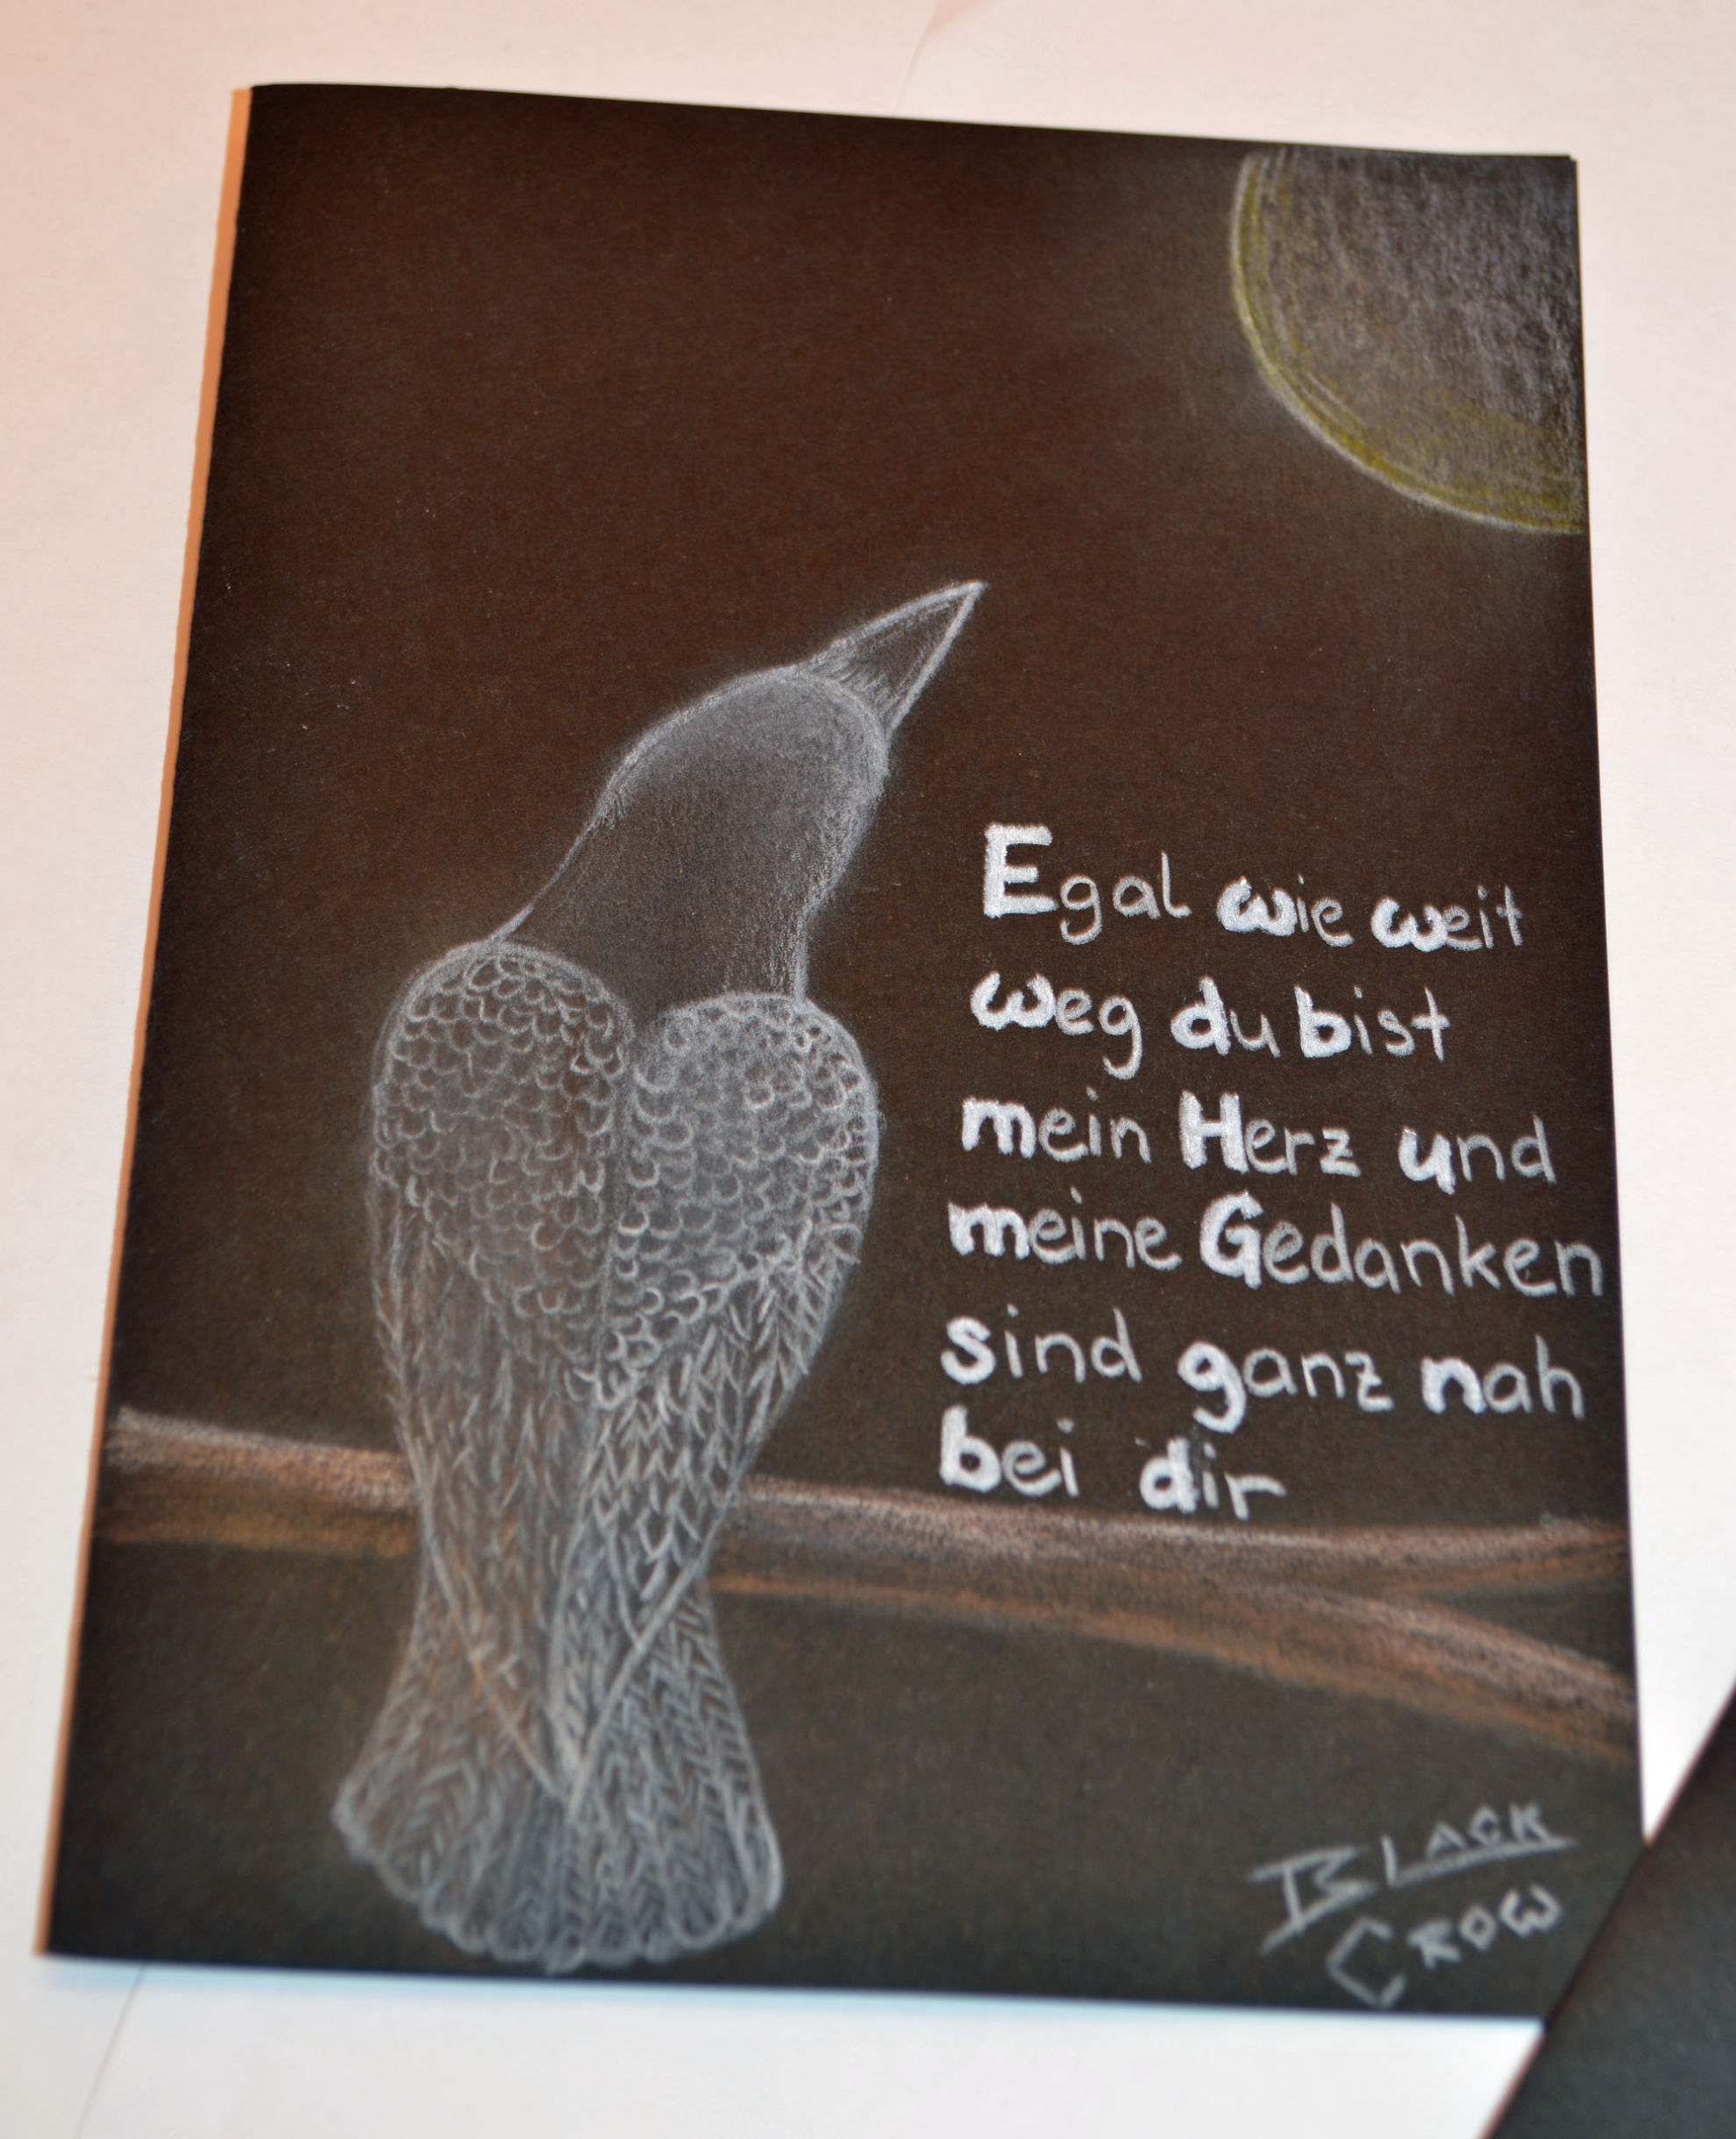 Egal wie weit
weg du bist
mein Herz und
meine Gedanken
sind ganz nah
bei dir
BLACK
CROW